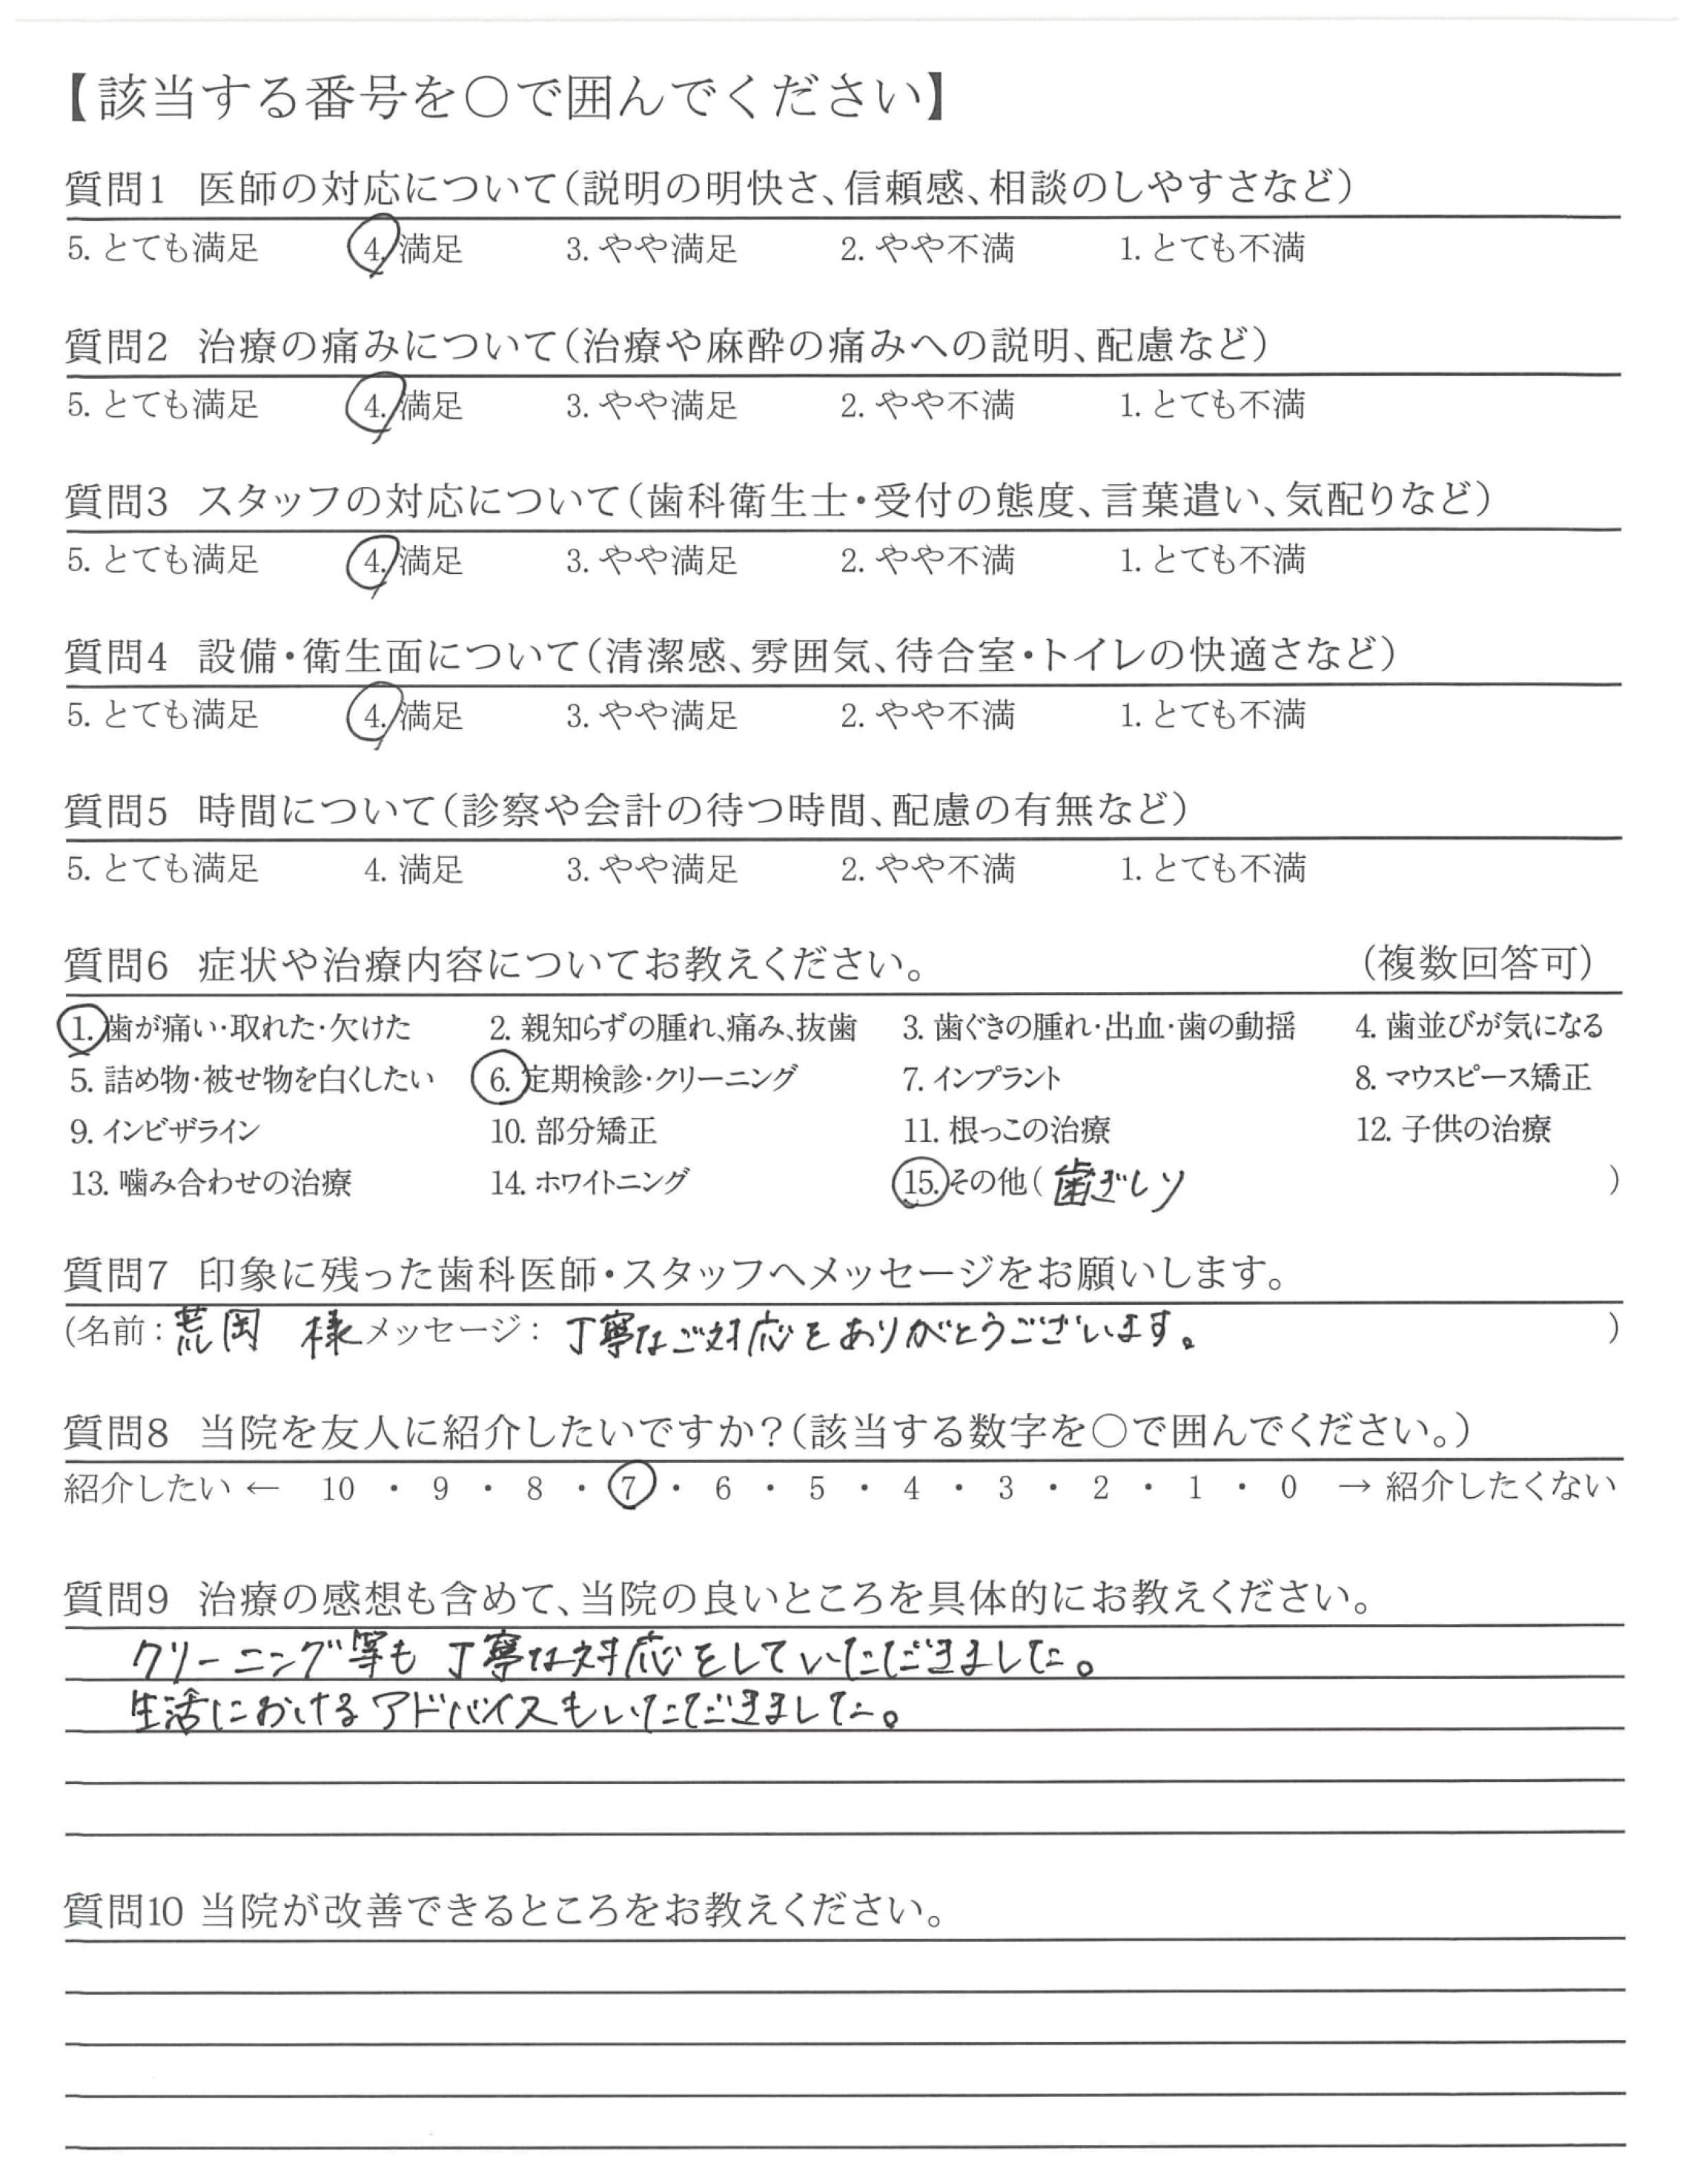 【該当する番号を〇で囲んでください】
質問1 医師の対応について(説明の明快さ、信頼感、相談のしやすさなど)
5. とても満足 4. 満足 3. やや満足 2. やや不満 1. とても不満
質問2 治療の痛みについて(治療や麻酔の痛みへの説明、配慮など)
5. とても満足 4. 満足 3. やや満足 2. やや不満 1. とても不満
質問3 スタッフの対応について(歯科衛生士・受付の態度、言葉遣い、気配りなど)
5. とても満足 4. 満足 3. やや満足 2. やや不満 1. とても不満
質問4 設備・衛生面について(清潔感、雰囲気、待合室・トイレの快適さなど)
5. とても満足 4. 満足 3. やや満足 2. やや不満 1. とても不満
質問5 時間について(診察や会計の待つ時間、配慮の有無など)
5. とても満足 4. 満足 3. やや満足 2. やや不満 1. とても不満
質問6 症状や治療内容についてお教えください。 (複数回答可)
1. 歯が痛い・取れた・欠けた 2. 親知らずの腫れ、痛み、抜歯 3. 歯ぐきの腫れ・出血・歯の動揺 4. 歯並びが気になる
5. 詰め物・被せ物を白くしたい 6. 定期検診・クリーニング 7. インプラント 8. マウスピース矯正
9. インビザライン 10. 部分矯正 11. 根っこの治療 12. 子供の治療
13. 噛み合わせの治療 14. ホワイトニング 15. その他( 歯ぎしり )
質問7 印象に残った歯科医師・スタッフへメッセージをお願いします。
(名前:荒岡 様 メッセージ: 丁寧なご対応をありがとうございます。 )
質問8 当院を友人に紹介したいですか?(該当する数字を〇で囲んでください。)
紹介したい ← 10 ・ 9 ・ 8 ・ 7 ・ 6 ・ 5 ・ 4 ・ 3 ・ 2 ・ 1 ・ 0 → 紹介したくない
質問9 治療の感想も含めて、当院の良いところを具体的にお教えください。
クリーニング等も 丁寧な対応をしていただきました。
生活におけるアドバイスもいただきました。
質問10 当院が改善できるところをお教えください。